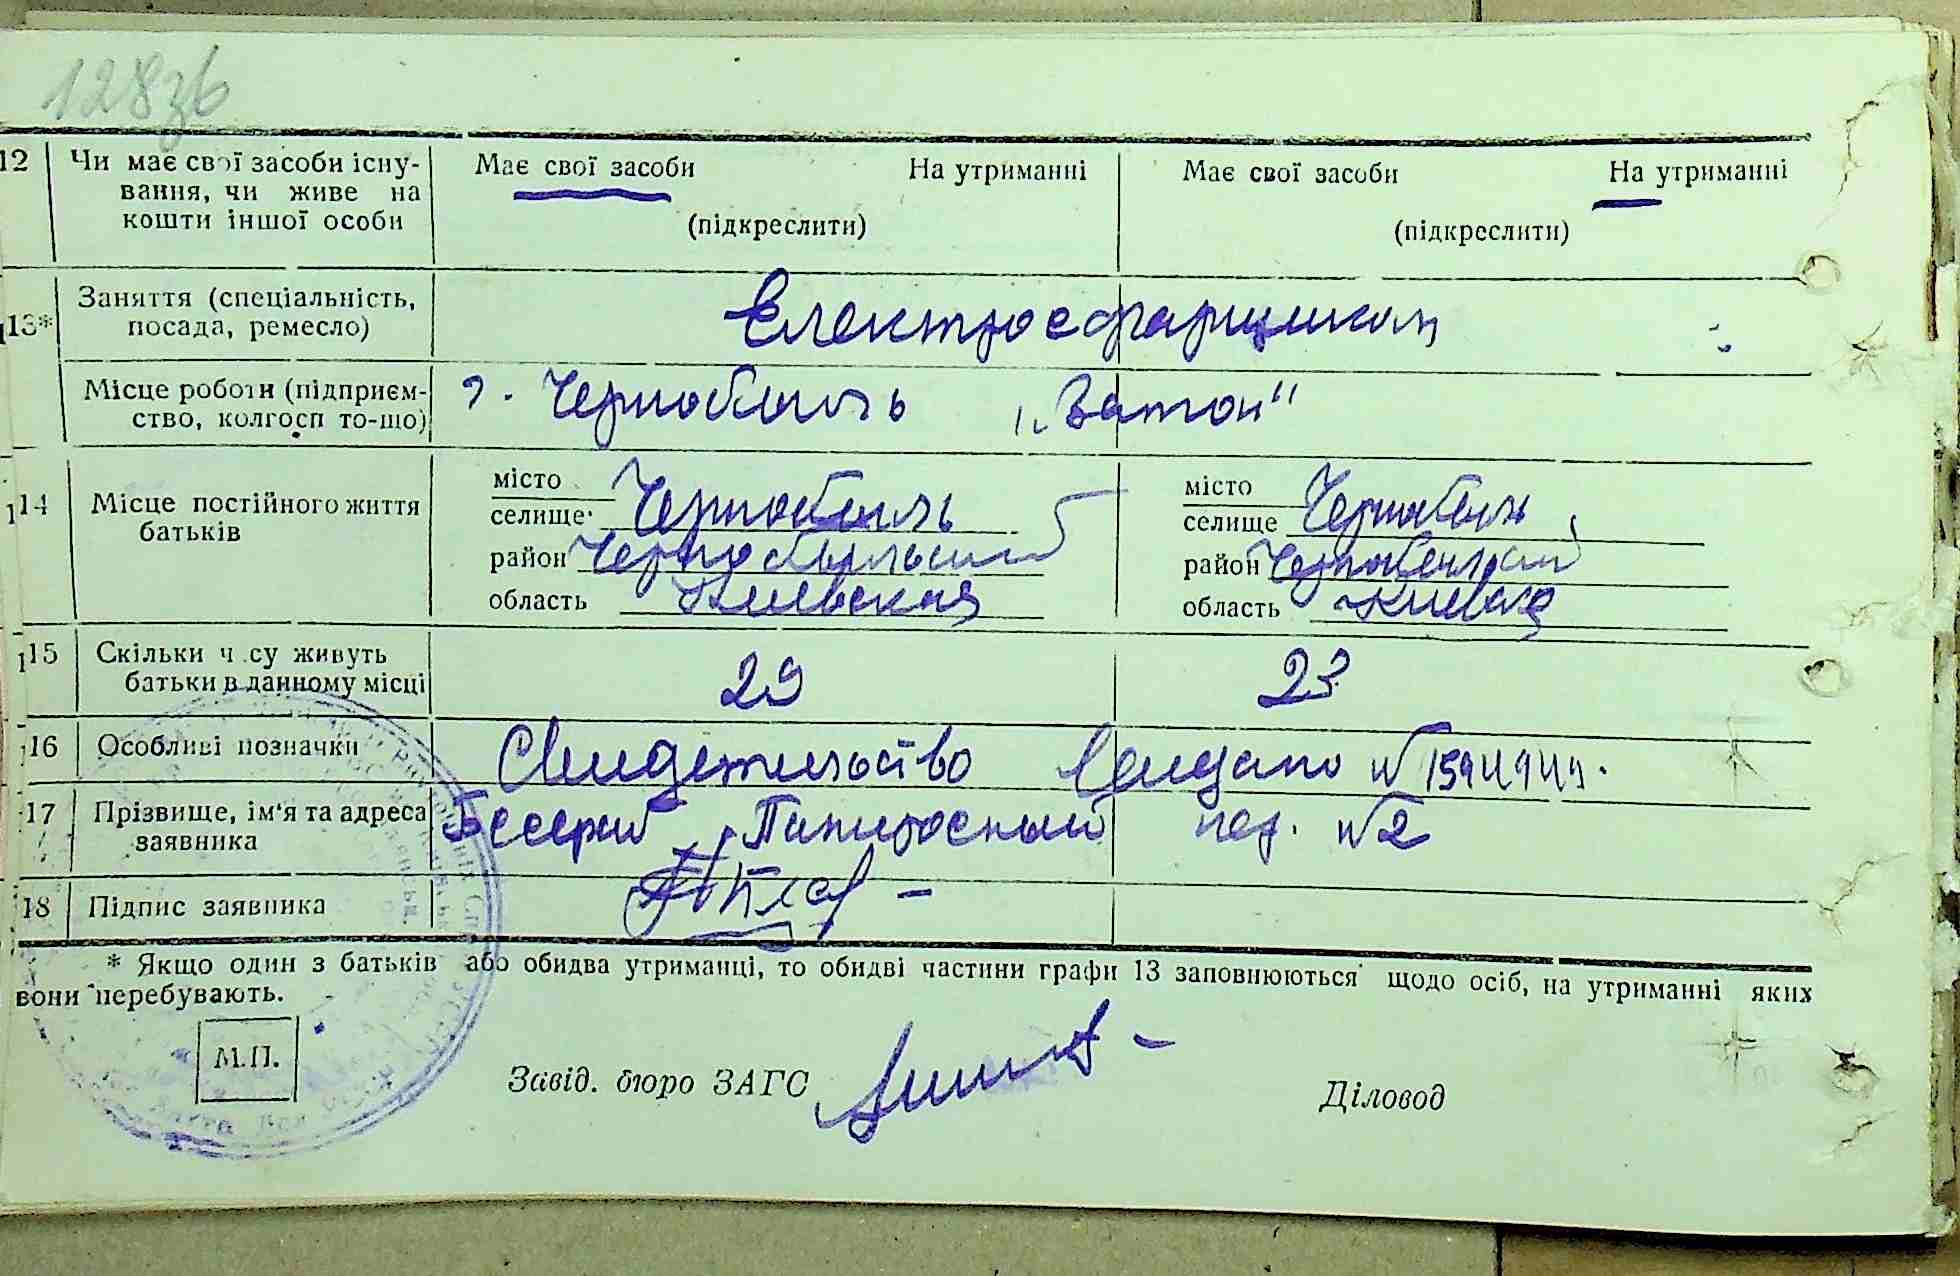 128зв
12 Чи має свої засоби існу- Має свої засоби На утриманні Має свої засоби На утриманні
вання, чи живе на
кошти іншої особи (підкреслити) (підкреслити)
13* Заняття (спеціальність, Електросварщиком
посада, ремесло)
Місце роботи (підприєм- г. Чернобыль „Затон"
ство, колгосп то-що)
14 Місце постійного життя місто Чернобыль місто Чернобыль
батьків селище селище
район Чернобыльский район
область Киевская область Киевская
15 Скільки часу живуть 29 23
батьки в данному місці
16 Особливі позначки Свидетельство №
17 Прізвище, ім'я та адреса пер. №2
заявника
18 Підпис заявника
* Якщо один з батьків або обидва утриманці, то обидві частини графи 13 заповнюються щодо осіб, на утриманні яких
вони перебувають.
М.П.
Завід. бюро ЗАГС Діловод